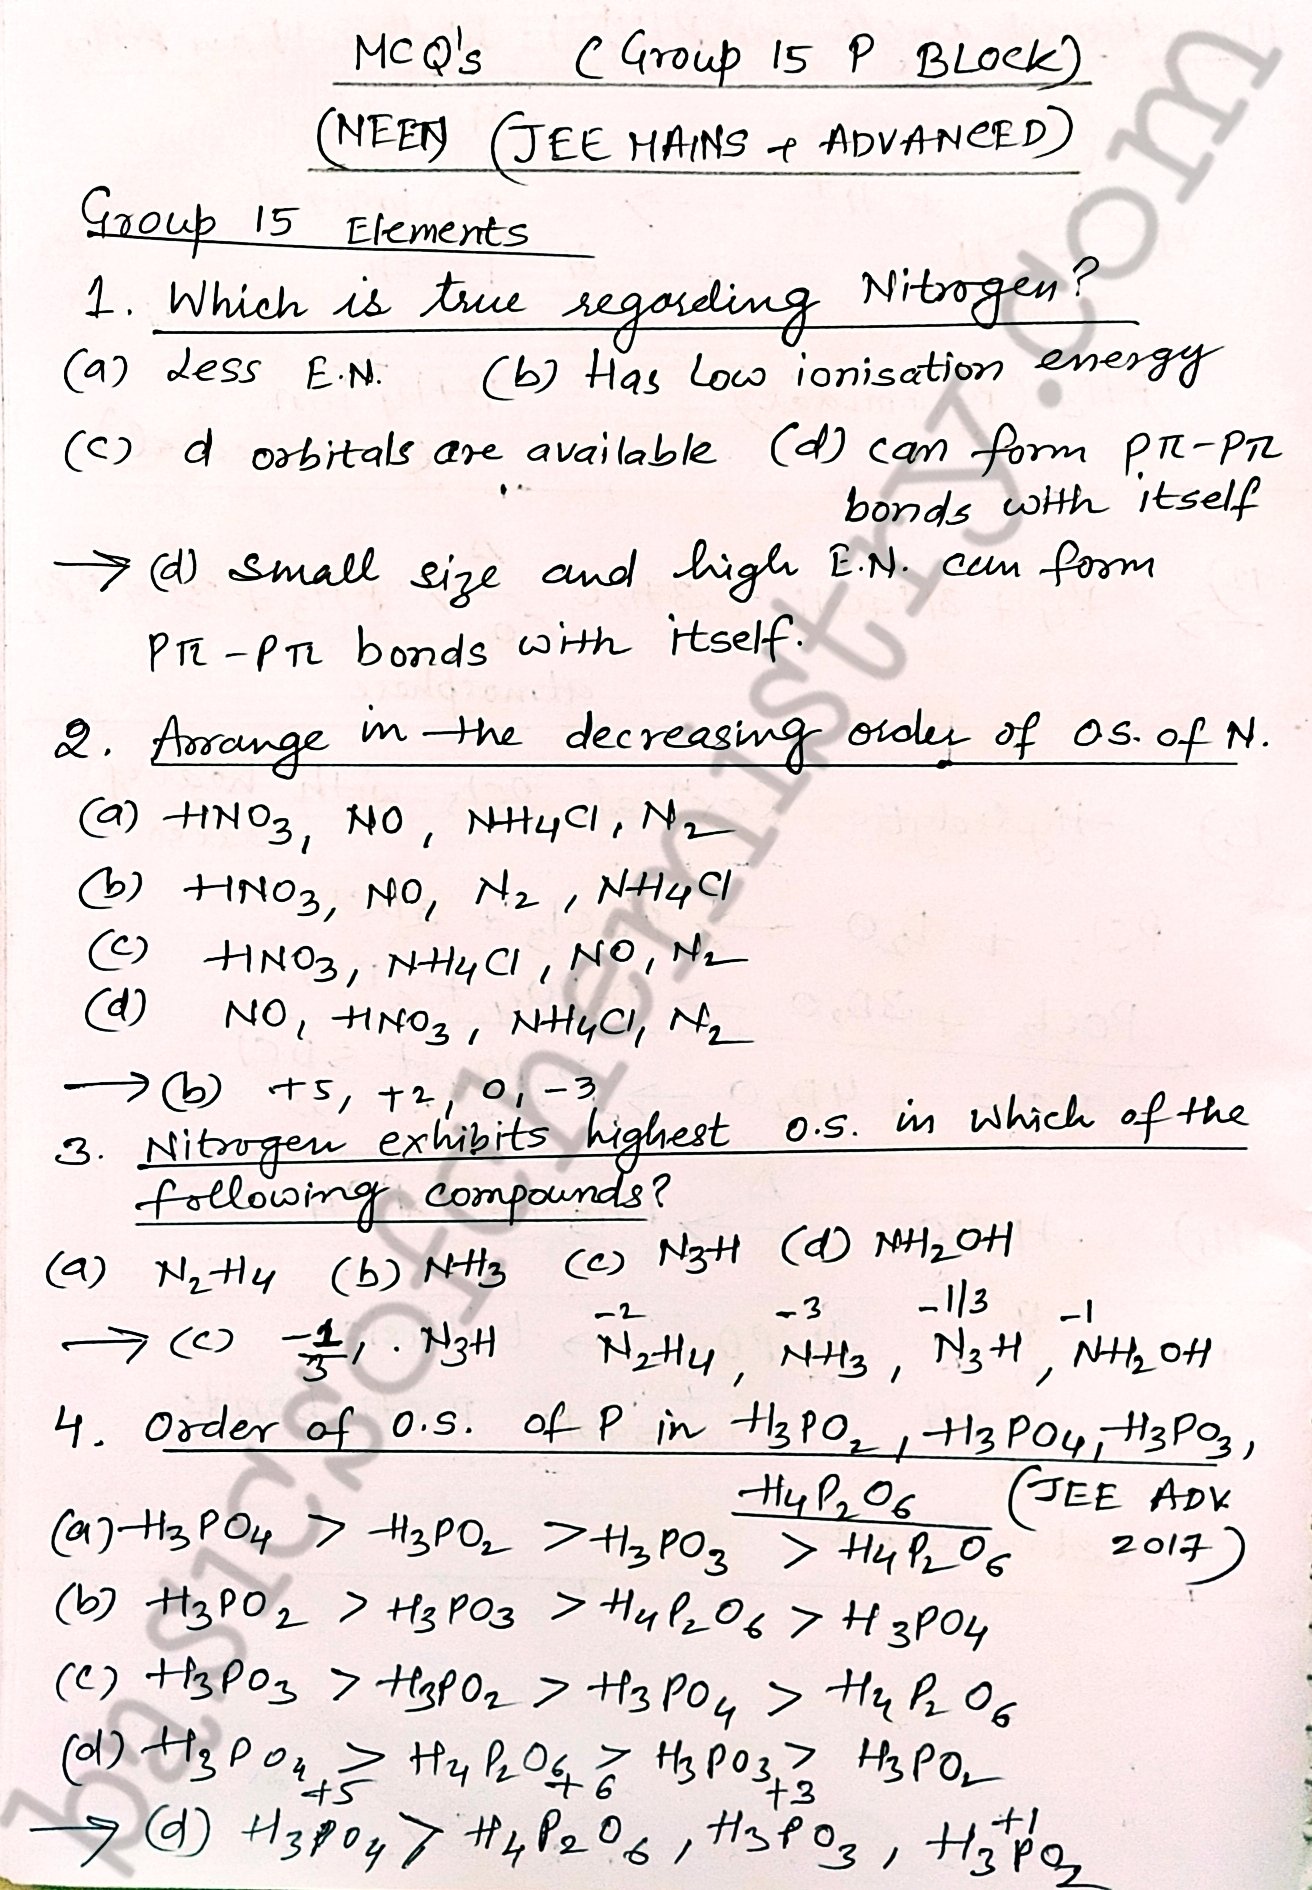 MCQ's (Group 15 P BLOCK)
(NEET) (JEE MAINS + ADVANCED)
Group 15 Elements
1. Which is true regarding Nitrogen?
(a) Less E.N. (b) Has Low ionisation energy
(c) d orbitals are available (d) can form pπ-pπ
bonds with itself
→ (d) Small size and high E.N. can form
pπ-pπ bonds with itself.
2. Arrange in the decreasing order of O.S. of N.
(a) HNO3, NO, NH4Cl, N2
(b) HNO3, NO, N2, NH4Cl
(c) HNO3, NH4Cl, NO, N2
(d) NO, HNO3, NH4Cl, N2
→ (b) +5, +2, 0, -3
3. Nitrogen exhibits highest O.S. in which of the
following compounds?
(a) N2H4 (b) NH3 (c) N3H (d) NH2OH
-2 -3 -1/3 -1
→ (c) -1/3, . N3H N2H4, NH3, N3H, NH2OH
4. Order of O.S. of P in H3PO2, H3PO4, H3PO3,
H4P2O6 (JEE ADV 2017)
(a) H3PO4 > H3PO2 > H3PO3 > H4P2O6
(b) H3PO2 > H3PO3 > H4P2O6 > H3PO4
(c) H3PO3 > H3PO2 > H3PO4 > H4P2O6
(d) H3PO4 > H4P2O6 > H3PO3 > H3PO2
+5 +6 +3 +1
→ (d) H3PO4 > H4P2O6, H3PO3, H3PO2
basicsofchemistry.com